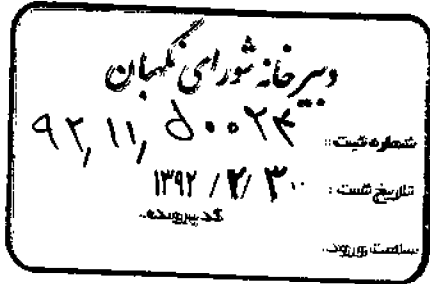 دبیرخانه شورای نگهبان
شماره ثبت: ۹۲٫۱۱٫۵۰۰۲۴
تاریخ ثبت: ۱۳۹۲/۲/۳۰
کد پرونده:
ساعت ورود: